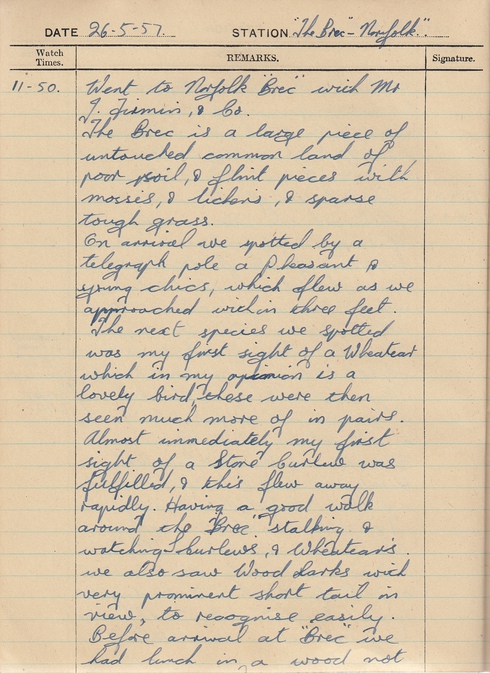 DATE 26-5-57. STATION "The Brec" - Norfolk".
Watch Times. REMARKS. Signature.
11-50. Went to Norfolk "Brec" with Mr
J. Firmin, & Co.
The Brec is a large piece of
untouched common land of
poor soil, & flint pieces with
mosses, & lichens, & sparse
tough grass.
On arrival we spotted by a
telegraph pole a Pheasant &
young chics, which flew as we
approached within three feet.
The next species we spotted
was my first sight of a Wheatear
which in my opinion is a
lovely bird, these were then
seen much more of in pairs.
Almost immediately my first
sight of a Stone Curlew was
fulfilled, & this flew away
rapidly. Having a good walk
around the "Brec" stalking &
watching Curlews, & Wheatears.
we also saw Wood Larks with
very prominent short tail in
view, to recognise easily.
Before arrival at "Brec" we
had lunch in a wood not